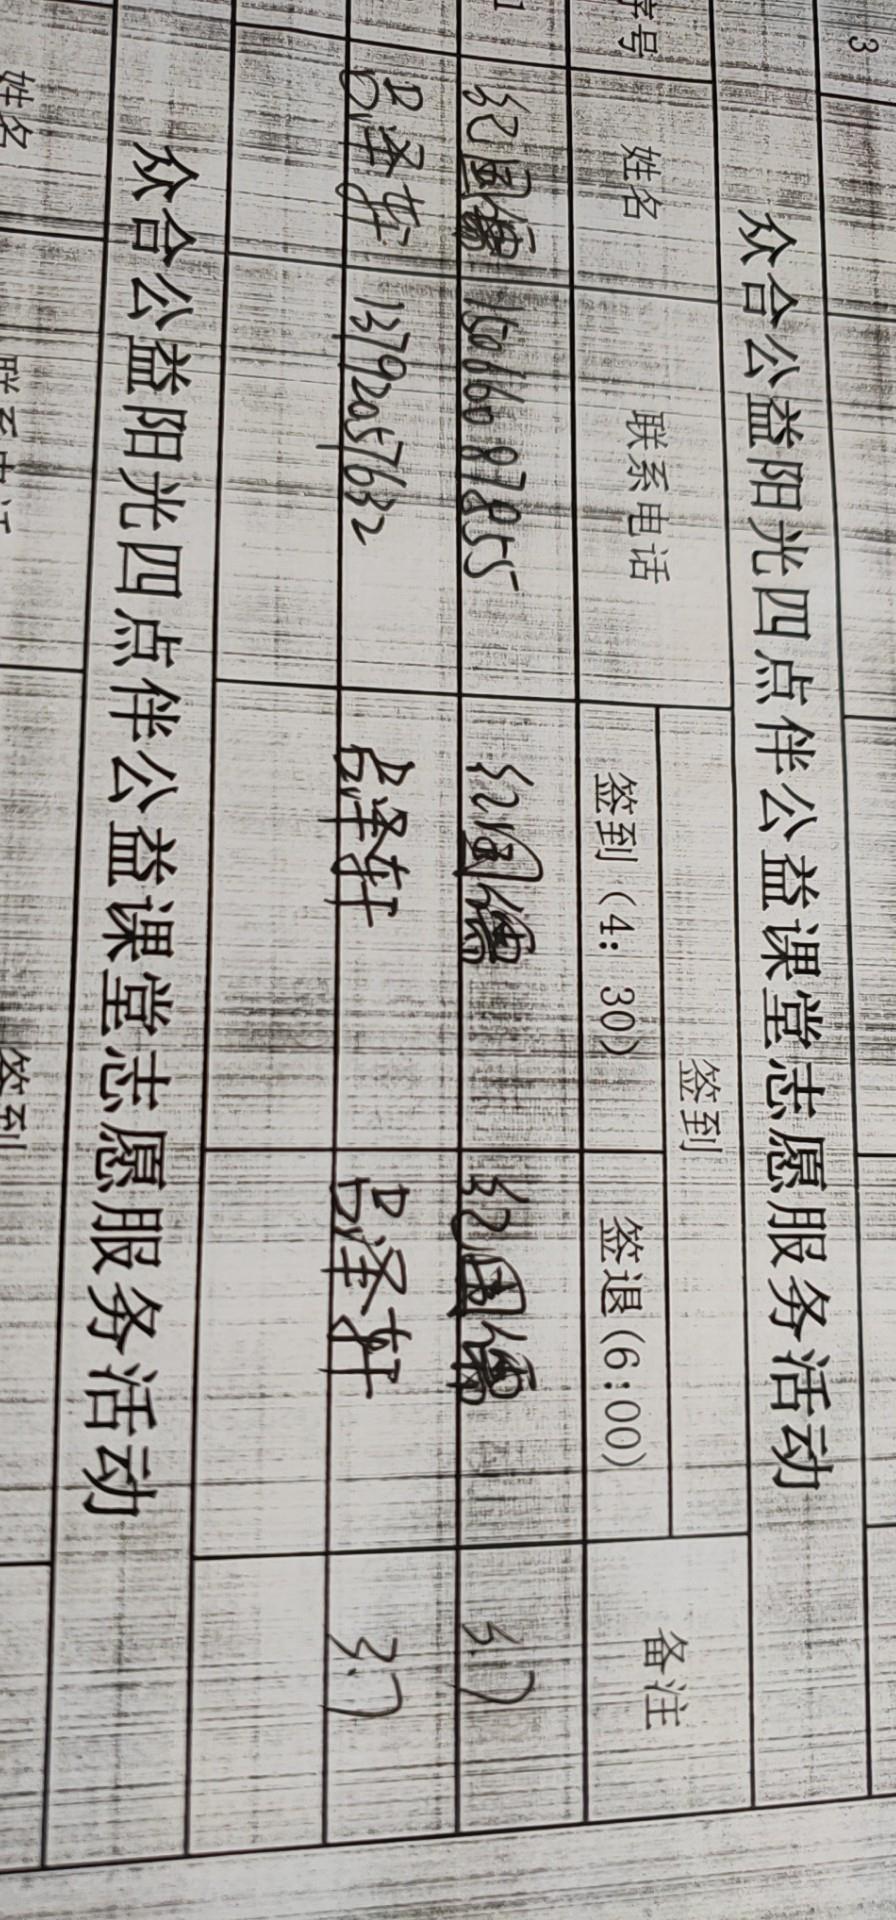 3
众合公益阳光四点伴公益课堂志愿服务活动
序号 姓名 联系电话 签到 备注
签到（4：30） 签退(6:00)
1 纪国儒 15066087855 纪国儒 纪国儒 3.7
吕泽轩 13792057632 吕泽轩 吕泽轩 3.7
众合公益阳光四点伴公益课堂志愿服务活动
姓名 联系电话 签到